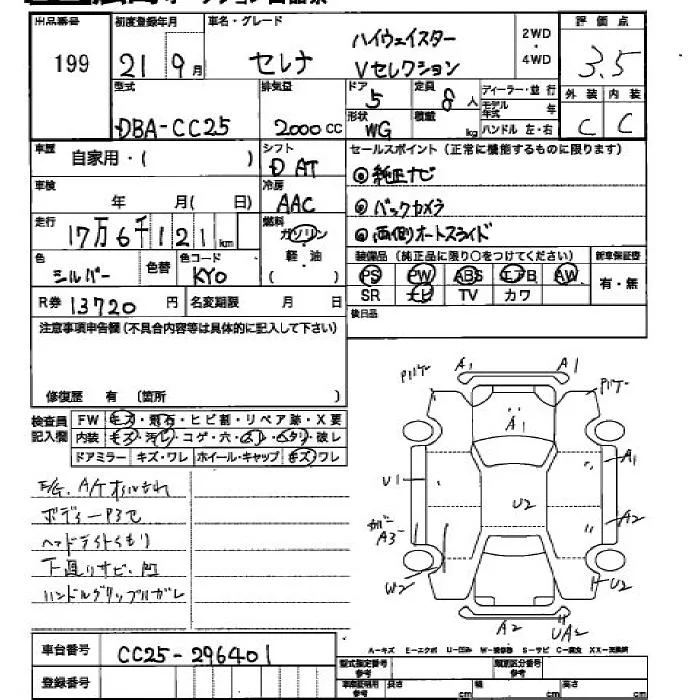 出品番号 199
初度登録年月 21 9月
車名・グレード セレナ ハイウェイスター Vセレクション
2WD・4WD
評価点 3.5
型式 DBA-CC25
排気量 2000 CC
ドア 5
定員 8人
ディーラー・並行
モデル年式 年
外装 C 内装 C
形状 WG
積載 kg
ハンドル 左・右
車歴 自家用・( )
シフト D AT
セールスポイント(正常に機能するものに限ります)
◎純正ナビ
車検 年 月( 日)
冷房 AAC
◎バックカメラ
走行 17万6千121km
燃料 ガソリン 軽・油 ( )
◎両側オートスライド
色 シルバー 色替
色コード KY0
装備品(純正品に限り○をつけてください)
新車保証書 有・無
PS PW ABS エアB AW
SR ナビ TV カワ
R券 13720円
名変期限 月 日
後日品
注意事項申告欄(不具合内容等は具体的に記入して下さい)
修復歴 有 (箇所 )
検査員記入欄
FW キズ・飛石・ヒビ割・リペア跡・X要
内装 キズ・汚レ・コゲ・穴・スレ・ヘタリ・破レ
ドアミラー キズ・ワレ ホイール・キャップ キズ・ワレ
E/G. A/T オイルもれ
ボディーP3て
ヘッドライトくもり
下廻りサビ、凹
ハンドルグリップハガレ
A1 A1
A1
U1 A1
U2
A3 A2
W2 U2
A2 UA2
車台番号 CC25-296401
登録番号
A-キズ E-エクボ U-凹み W-補修跡 S-サビ C-腐食 XX-交換済
型式指定番号 参考
類別区分番号 参考
車庫証明用 参考 長さ cm 幅 cm 高さ cm